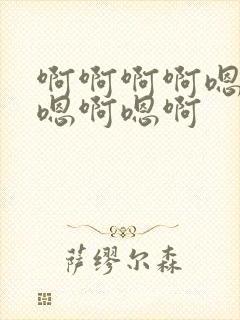 啊啊啊啊嗯
嗯啊嗯啊
萨缪尔森